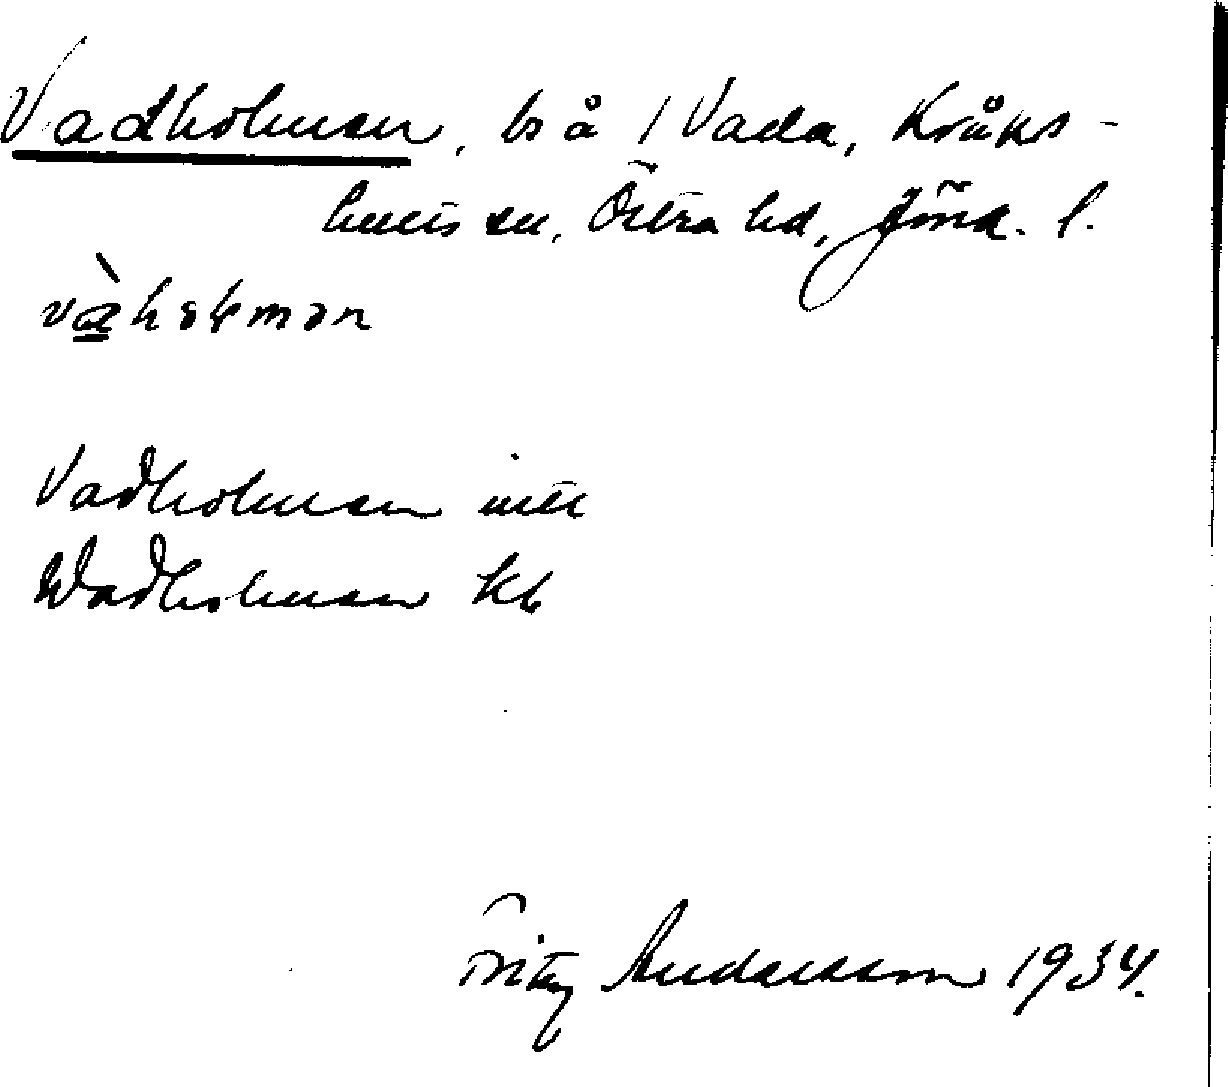 Vadholmen, bs å 1 Vada, Kråks-
hults sn, Östra hd, Jönk. l.
vàhoɫmən
Vadholmen mtl
Wadholmen kb
Fritz Andersson 1934.